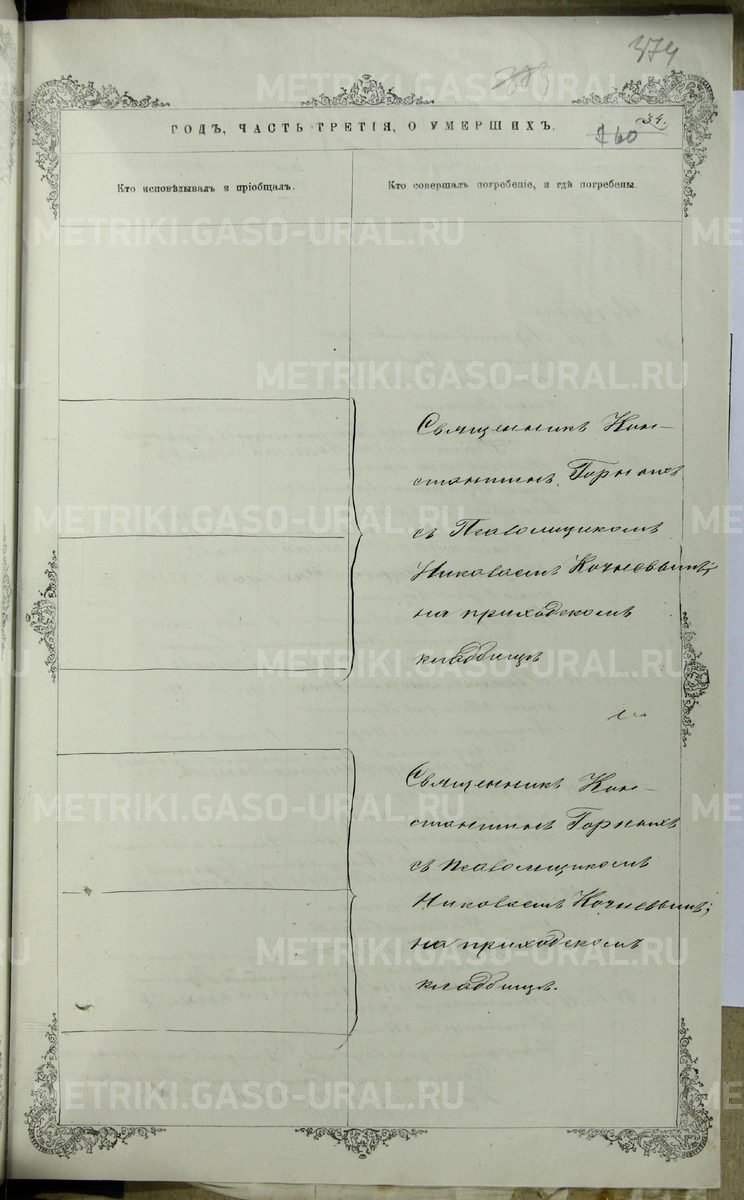 374
34.
260
ГОДЪ, ЧАСТЬ ТРЕТІЯ, О УМЕРШИХЪ.
Кто исповѣдывалъ и пріобщалъ.
Кто совершалъ погребеніе, и гдѣ погребены.
Священникъ Кон-
стантинъ Горныхъ
съ Псаломщикомъ
Николаемъ Кочневымъ;
на приходскомъ
кладбищѣ
Священникъ Кон-
стантинъ Горныхъ
съ псаломщикомъ
Николаемъ Кочневымъ;
на приходскомъ
кладбищѣ.
METRIKI.GASO-URAL.RU